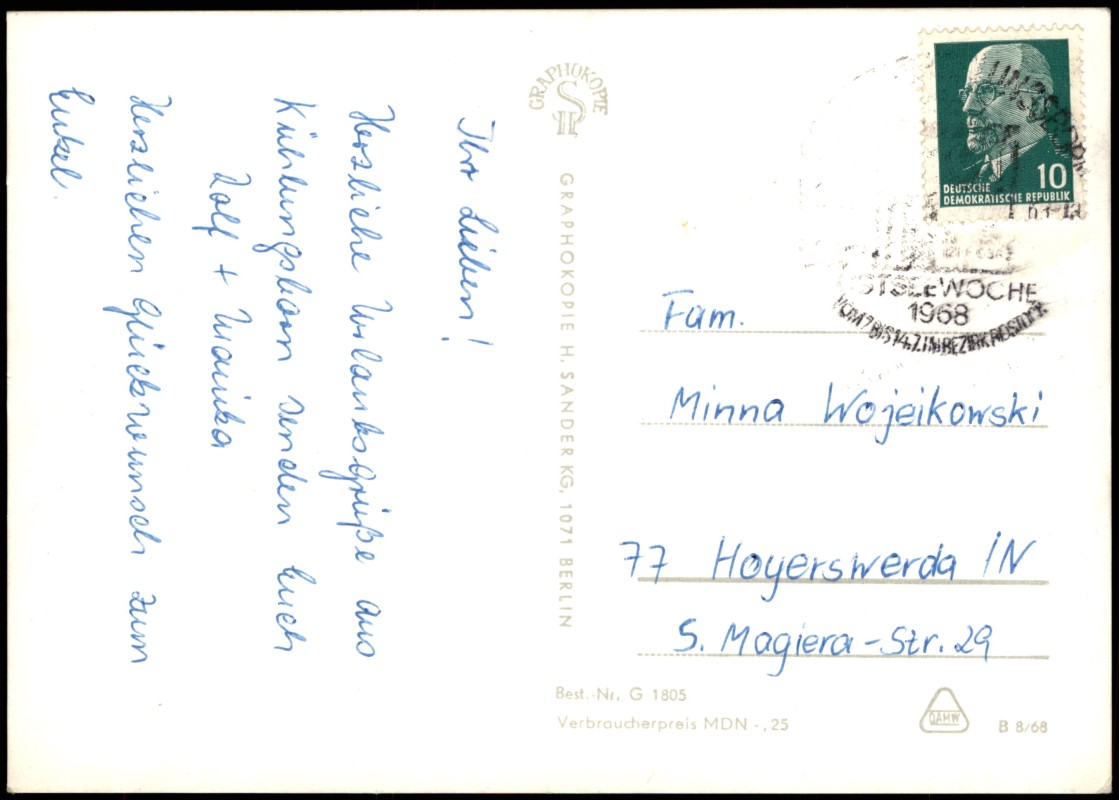 Ihr Lieben!
Herzliche Urlaubsgrüße aus
Kühlungsborn senden Euch
Rolf + Marika
Herzlichen Glückwunsch zum
Enkel.
GRAPHOKOPIE
GRAPHOKOPIE H. SANDER KG, 1071 BERLIN
10
DEUTSCHE
DEMOKRATISCHE REPUBLIK
OSTSEEWOCHE
1968
VOM 7. BIS 14.7. IM BEZIRK ROSTOCK
Fam.
Minna Wojeikowski
77 Hoyerswerda IN
S. Magiera-Str. 29
Best.-Nr. G 1805
Verbraucherpreis MDN -,25
DAMW
B 8/68